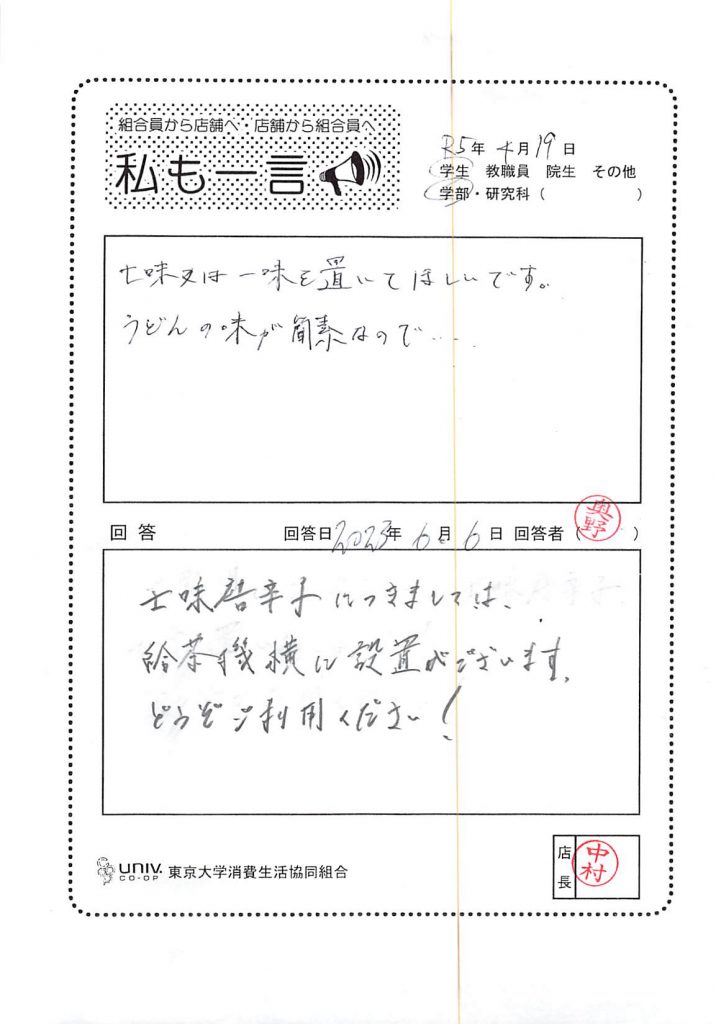 組合員から店舗へ・店舗から組合員へ
私も一言
R5年 4月19日
学生 教職員 院生 その他
学部・研究科（ ）
七味又は一味を置いてほしいです。
うどんの味が簡素なので…
回答 回答日 2023年 6月 6日 回答者（奥野）
七味唐辛子につきましては、
給茶機横に設置がございます。
どうぞご利用ください！
UNIV. CO-OP 東京大学消費生活協同組合
店長 中村